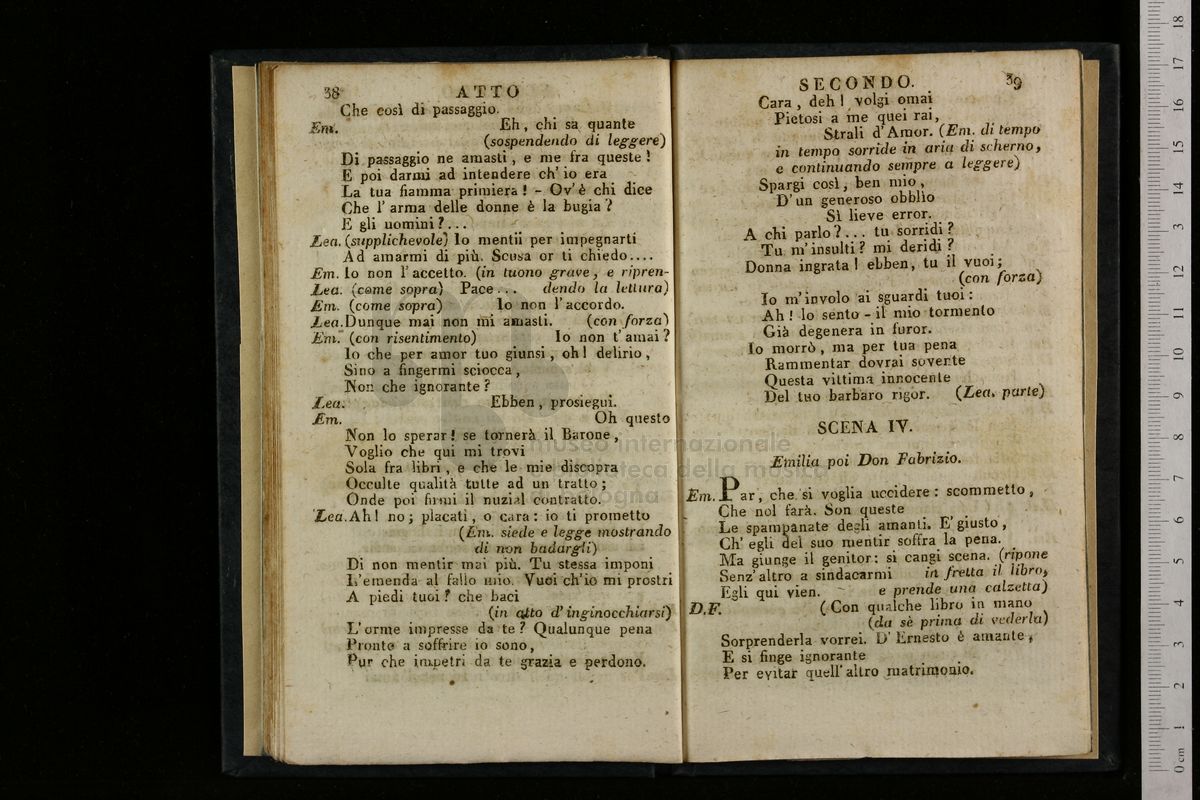 38 ATTO
Che così di passaggio.
Em. Eh, chi sa quante
(sospendendo di leggere)
Di passaggio ne amasti, e me fra queste!
E poi darmi ad intendere ch'io era
La tua fiamma primiera! - Ov'è chi dice
Che l'arma delle donne è la bugia?
E gli uomini?...
Lea. (supplichevole) Io mentii per impegnarti
Ad amarmi di più. Scusa or ti chiedo....
Em. Io non l'accetto. (in tuono grave, e ripren-
Lea. (come sopra) Pace... dendo la lettura)
Em. (come sopra) Io non l'accordo.
Lea. Dunque mai non mi amasti. (con forza)
Em. (con risentimento) Io non t'amai?
Io che per amor tuo giunsi, oh! delirio,
Sino a fingermi sciocca,
Non che ignorante?
Lea. Ebben, prosiegui.
Em. Oh questo
Non lo sperar! se tornerà il Barone,
Voglio che qui mi trovi
Sola fra libri, e che le mie discopra
Occulte qualità tutte ad un tratto;
Onde poi firmi il nuzial contratto.
Lea. Ah! no; placati, o cara: io ti prometto
(Em. siede e legge mostrando
di non badargli)
Di non mentir mai più. Tu stessa imponi
L'emenda al fallo mio. Vuoi ch'io mi prostri
A piedi tuoi? che baci
(in atto d'inginocchiarsi)
L'orme impresse da te? Qualunque pena
Pronto a soffrire io sono,
Pur che impetri da te grazia e perdono.
SECONDO. 39
Cara, deh! volgi omai
Pietosi a me quei rai,
Strali d'Amor. (Em. di tempo
in tempo sorride in aria di scherno,
e continuando sempre a leggere)
Spargi così, ben mio,
D'un generoso obblio
Sì lieve error.
A chi parlo?... tu sorridi?
Tu m'insulti? mi deridi?
Donna ingrata! ebben, tu il vuoi;
(con forza)
Io m'involo ai sguardi tuoi:
Ah! lo sento - il mio tormento
Già degenera in furor.
Io morrò, ma per tua pena
Rammentar dovrai sovente
Questa vittima innocente
Del tuo barbaro rigor. (Lea. parte)
SCENA IV.
Emilia poi Don Fabrizio.
Em. Par, che si voglia uccidere: scommetto,
Che nol farà. Son queste
Le spampanate degli amanti. E' giusto,
Ch' egli del suo mentir soffra la pena.
Ma giunge il genitor: si cangi scena. (ripone
Senz'altro a sindacarmi in fretta il libro,
Egli qui vien. e prende una calzetta)
D.F. (Con qualche libro in mano
(da sè prima di vederla)
Sorprenderla vorrei. D'Ernesto è amante,
E si finge ignorante
Per evitar quell'altro matrimonio.
museo internazionale
biblioteca della musica
bologna
0 cm 1 2 3 4 5 6 7 8 9 10 11 12 13 14 15 16 17 18